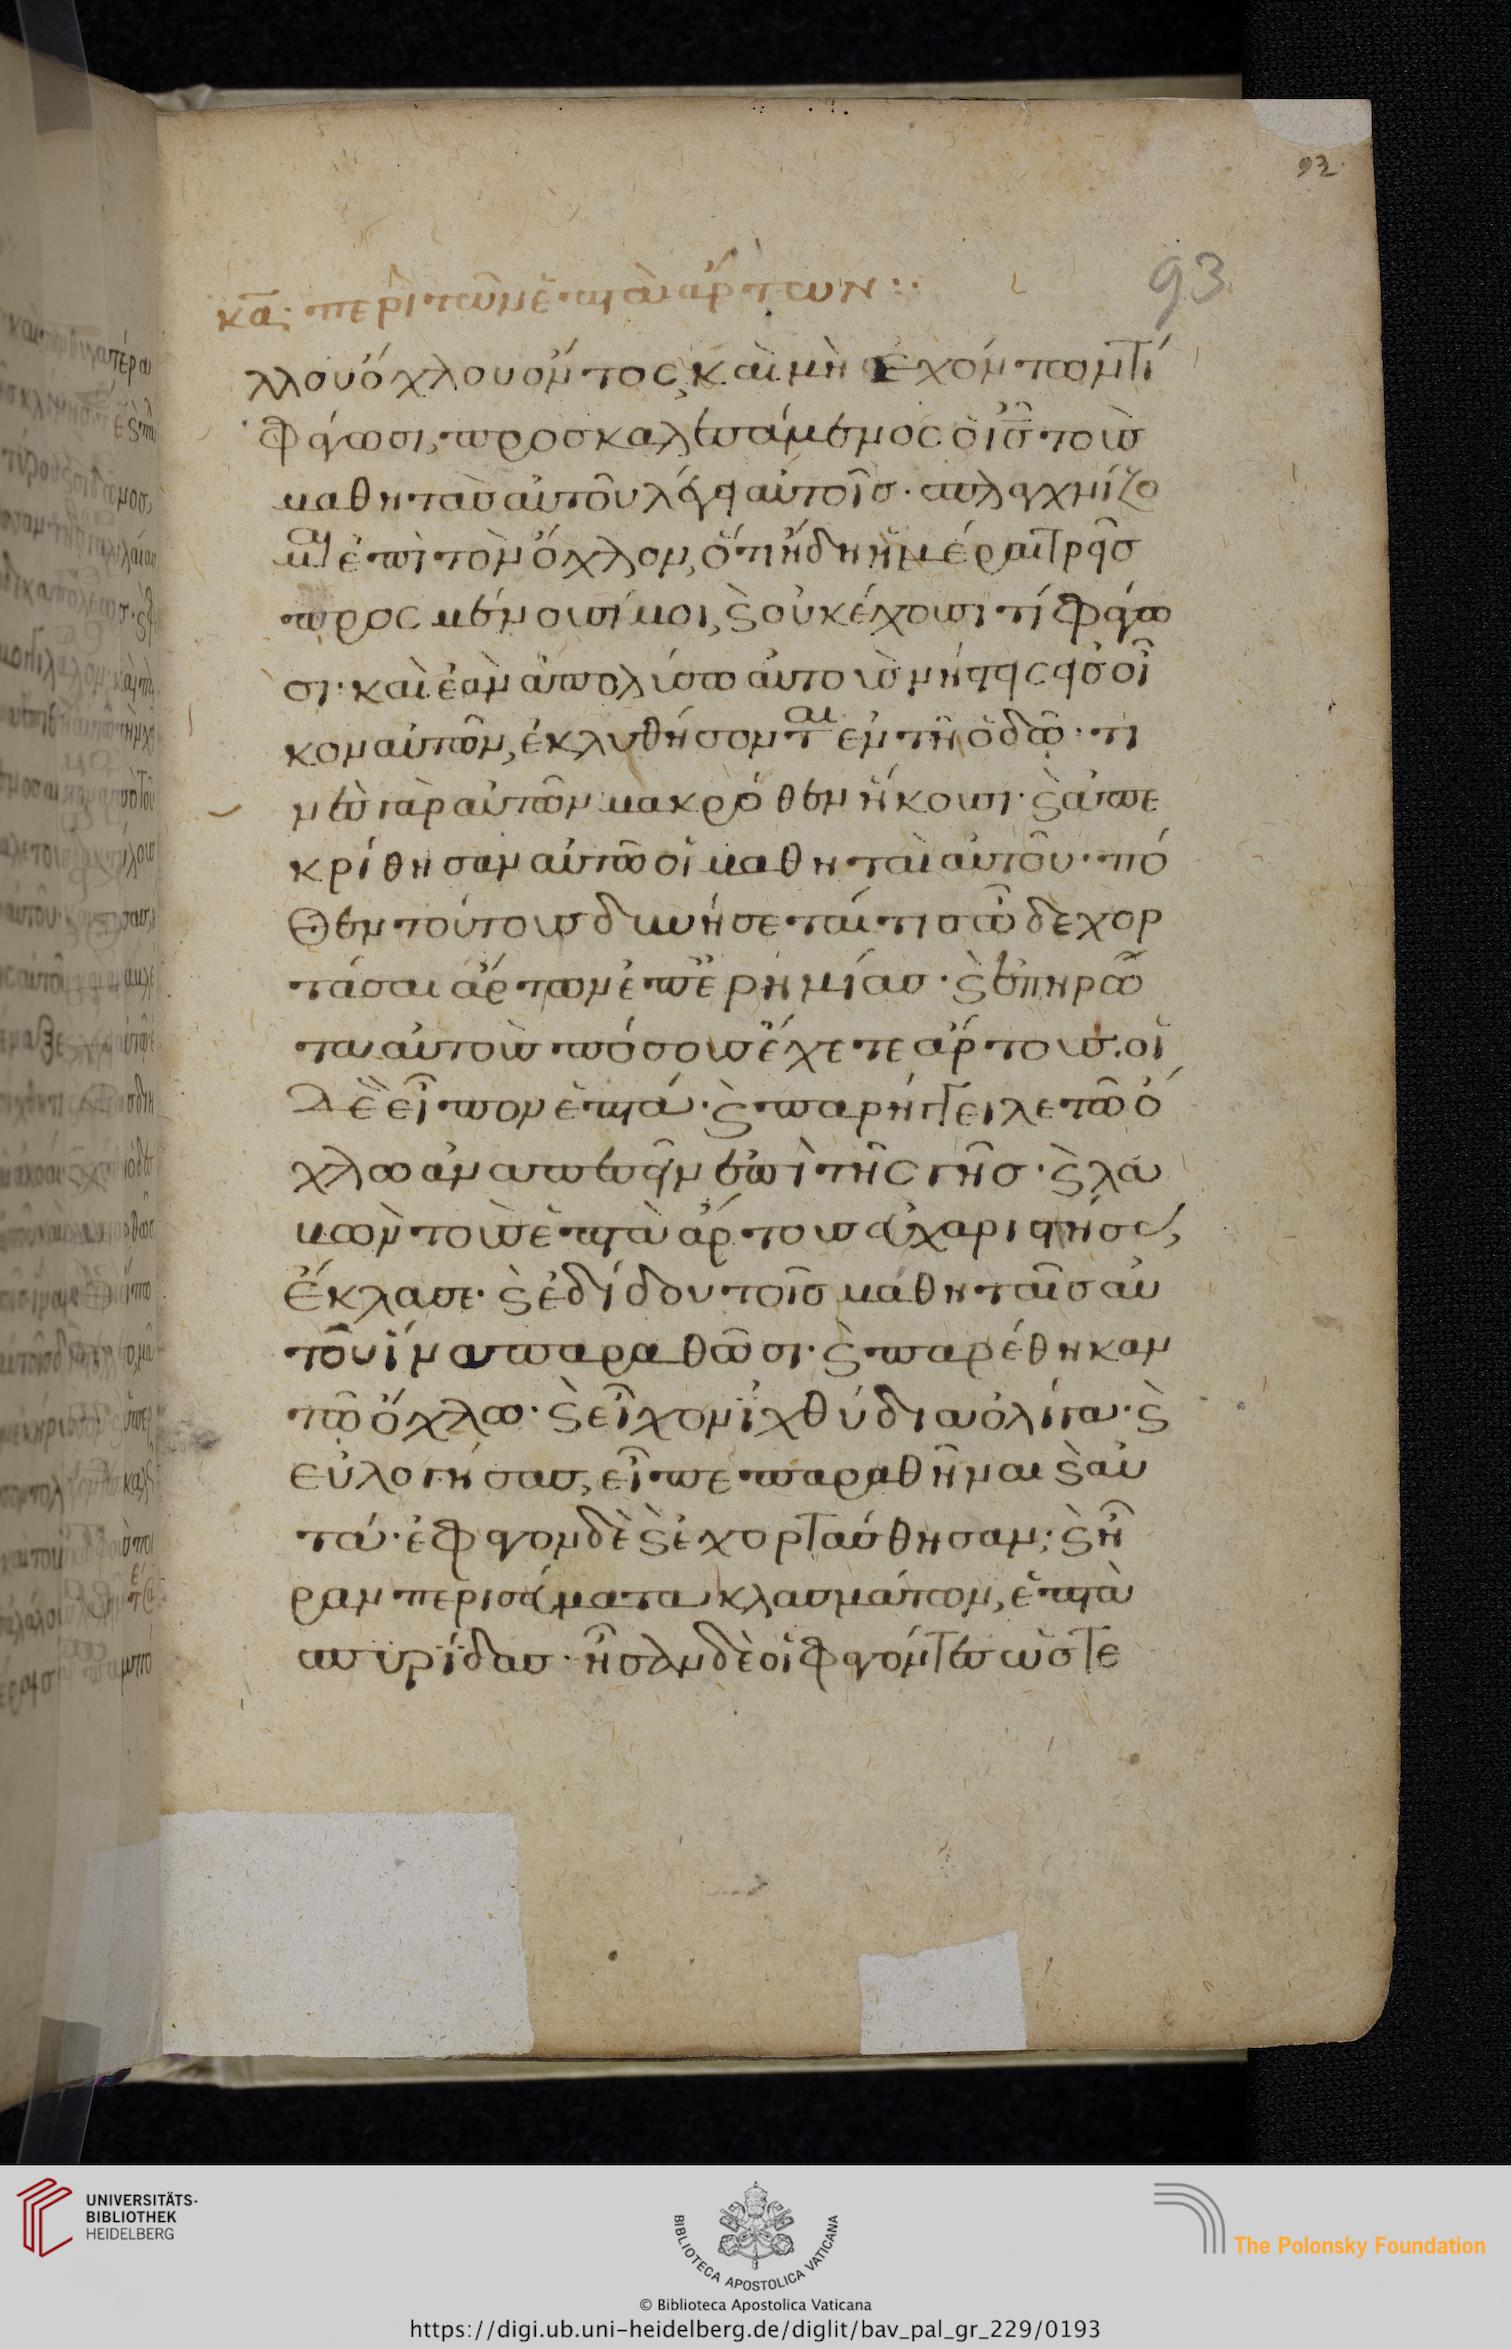 93
93
κα· περὶ τῶν ἑπτὰ ἄρτων :·
λλου ὄχλου ὄντος, καὶ μὴ ἐχόντων τί
φάγωσι, προσκαλεσάμενος ὁ ις τοὺς
μαθητὰς αὐτοῦ λέγει αὐτοῖς· σπλαγχνίζο
μαι ἐπὶ τὸν ὄχλον, ὅτι ἤδη ἡμέραι τρεῖς
προσμένουσί μοι, ϗ οὐκ έχουσι τί φάγω
σι· καὶ ἐὰν ἀπολύσω αὐτοὺς νήστεις εἰς οἶ
κον αὐτῶν, ἐκλυθήσονται ἐν τῇ ὁδῷ· τι
νὲς γὰρ αὐτῶν μακρόθεν ἥκουσι· ϗ ἀπε
κρίθησαν αὐτῶ οἱ μαθηταὶ αὐτοῦ· πό
θεν τούτους δυνήσεταί τις ὧδε χορ
τάσαι ἄρτων ἐπ ἐρημίας· ϗ ἐπηρώ
τα αὐτοὺς πόσους ἔχετε ἄρτους· οἱ
δὲ εἶπον ἑπτά· ϗ παρήγγειλε τῶ ὄ
χλω ἀναπεσεῖν ἐπὶ τῆς γῆς· ϗ λα
βὼν τοὺς ἑπτὰ ἄρτους εὐχαριστήσας,
ἔκλασε· ϗ ἐδίδου τοῖς μαθηταῖς αὐ
τοῦ ἵνα παραθῶσι· ϗ παρέθηκαν
τῶ ὄχλω· ϗ εἶχον ἰχθύδια ὀλίγα· ϗ
εὐλογήσας, εἶπε παραθῆναι ϗ αὐ
τά· ἔφαγον δὲ ϗ ἐχορτάσθησαν· ϗ ἦ
ραν περισσεύματα κλασμάτων, ἑπτὰ
σπυρίδας· ἦσαν δὲ οἱ φαγόντες ὡς τε
UNIVERSITÄTS-
BIBLIOTHEK
HEIDELBERG
BIBLIOTECA APOSTOLICA VATICANA
The Polonsky Foundation
© Biblioteca Apostolica Vaticana
https://digi.ub.uni-heidelberg.de/diglit/bav_pal_gr_229/0193